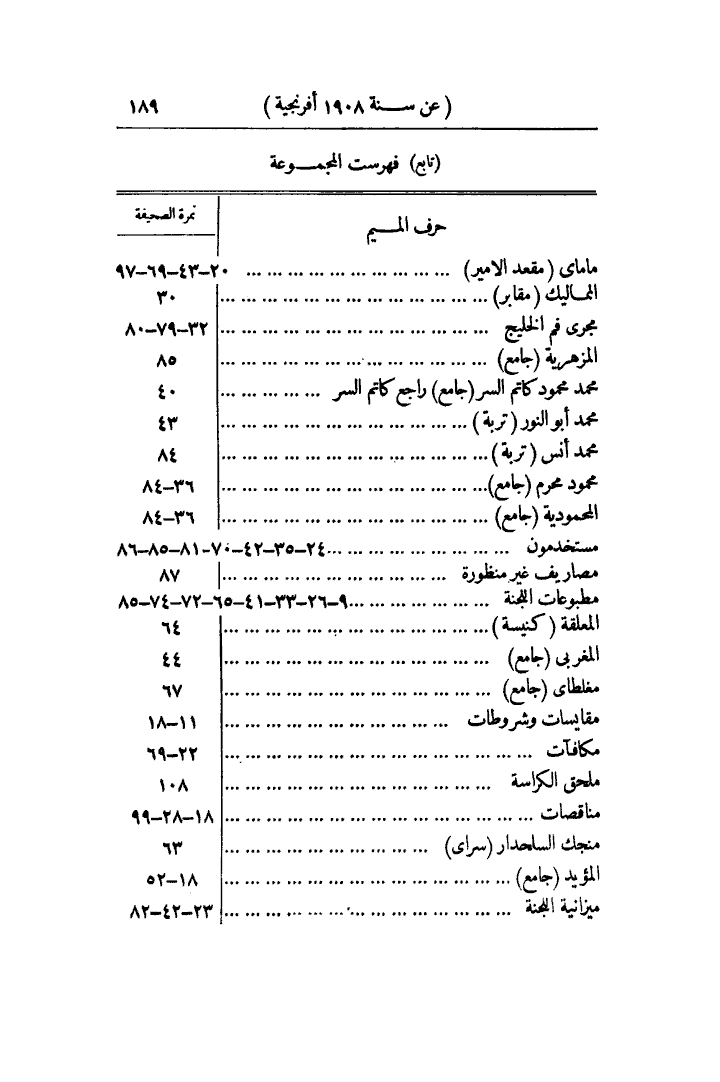 (عن سنة ١٩٠٨ أفرنجية) ١٨٩
(تابع) فهرست المجموعة
حرف الميم نمرة الصحيفة
ماماى (مقعد الامير) ... ٢٠–٤٣–٦٩–٩٧
المماليك (مقابر) ... ٣٠
مجرى فم الخليج ... ٣٢–٧٩–٨٠
المزهرية (جامع) ... ٨٥
محمد محمود كاتم السر (جامع) راجع كاتم السر ... ٤٠
محمد أبو النور (تربة) ... ٤٣
محمد أنس (تربة) ... ٨٤
محمود محرم (جامع) ... ٣٦–٨٤
المحمودية (جامع) ... ٣٦–٨٤
مستخدمون ... ٢٤–٣٥–٤٢–٧٠–٨١–٨٥–٨٦
مصاريف غير منظورة ... ٨٧
مطبوعات اللجنة ... ٩–٢٦–٣٣–٤١–٦٥–٧٢–٧٤–٨٥
المعلقة (كنيسة) ... ٦٤
المغربى (جامع) ... ٤٤
مغلطاى (جامع) ... ٦٧
مقايسات وشروطات ... ١١–١٨
مكافآت ... ٢٢–٦٩
ملحق الكراسة ... ١٠٨
مناقصات ... ١٨–٢٨–٩٩
منجك السلحدار (سراى) ... ٦٣
المؤيد (جامع) ... ١٨–٥٢
ميزانية اللجنة ... ٢٣–٤٢–٨٢